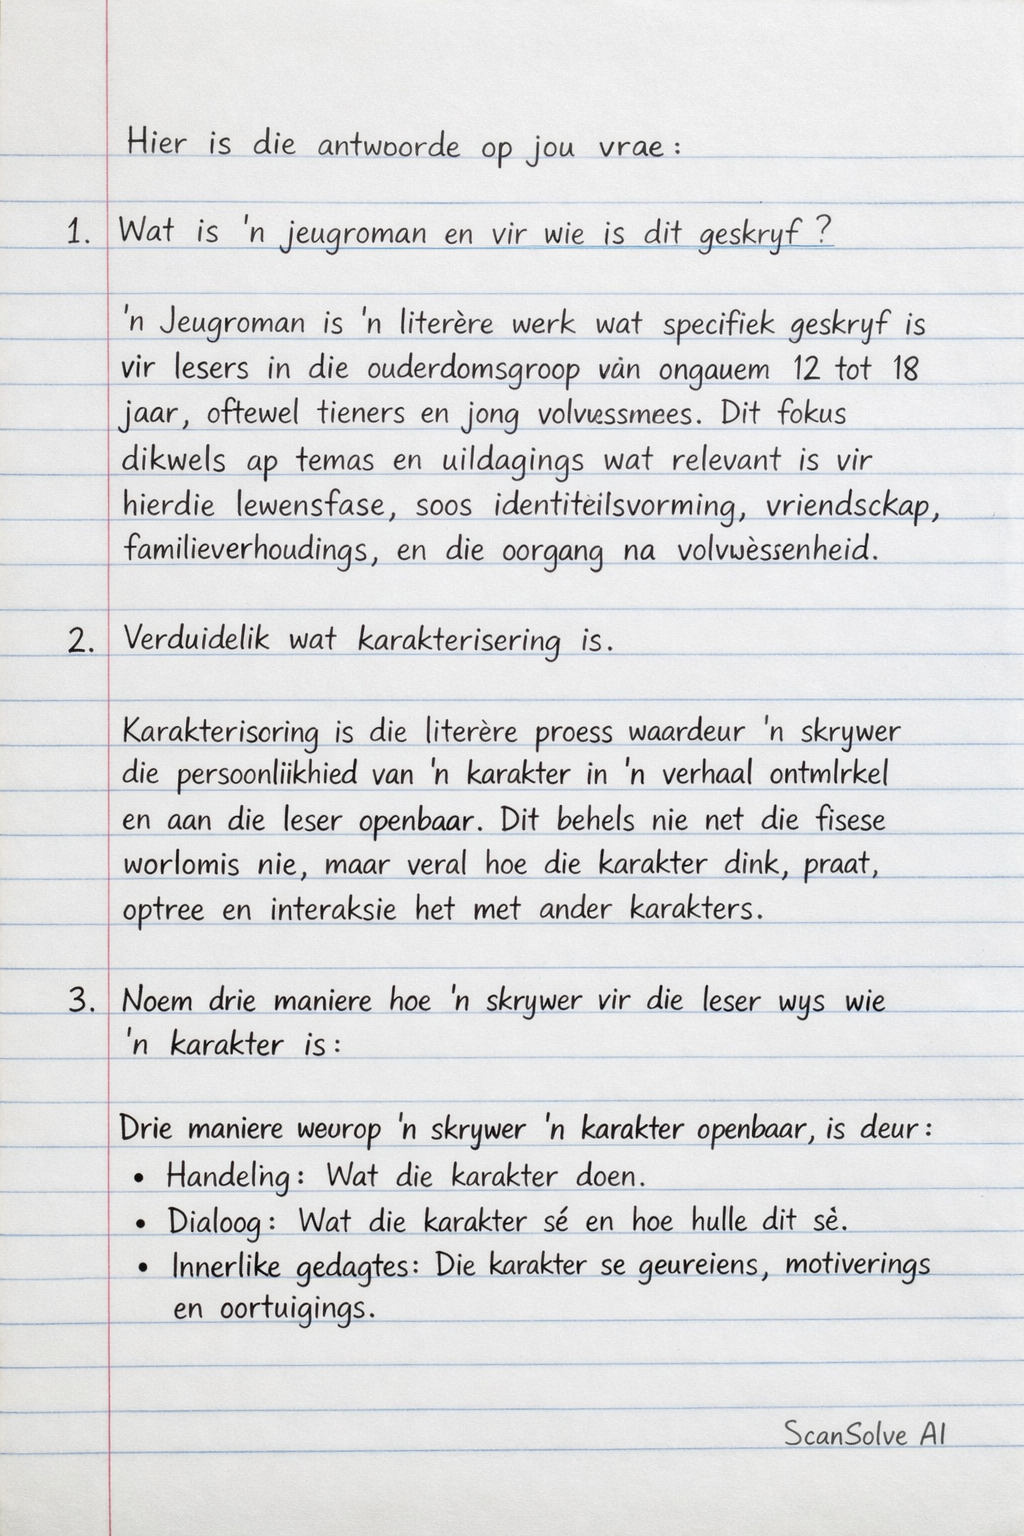 Hier is die antwoorde op jou vrae:
1. Wat is 'n jeugroman en vir wie is dit geskryf?
'n Jeugroman is 'n literère werk wat specifiek geskryf is
vir lesers in die ouderdomsgroop vàn ongauem 12 tot 18
jaar, oftewel tieners en jong volvuessmees. Dit fokus
dikwels ap temas en uildagings wat relevant is vir
hierdie lewensfase, soos identitèilsvorming, vriendsckap,
familieverhoudings, en die oorgang na volvwèssenheid.
2. Verduidelik wat karakterisering is.
Karakterisoring is die literère proess waardeur 'n skrywer
die persoonliikhied van 'n karakter in 'n verhaal ontmlrkel
en aan die leser openbaar. Dit behels nie net die fisese
worlomis nie, maar veral hoe die karakter dink, praat,
optree en interaksie het met ander karakters.
3. Noem drie maniere hoe 'n skrywer vir die leser wys wie
'n karakter is:
Drie maniere weurop 'n skrywer 'n karakter openbaar, is deur:
• Handelng: Wat die karakter doen.
• Dialoog: Wat die karakter sé en hoe hulle dit sè.
• Innerlike gedagtes: Die karakter se geureiens, motiverings
en oortuigings.
ScanSolve AI